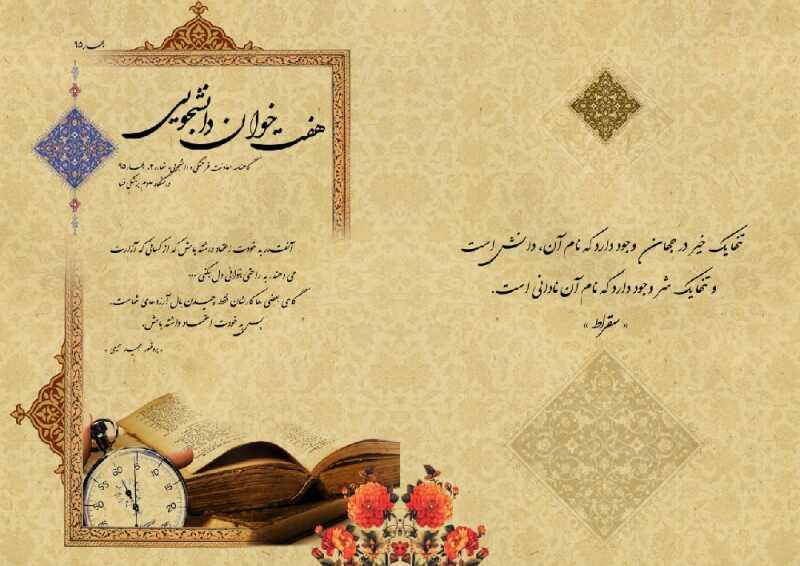 بهار ۹۵
هفت خوان دانشجویی
گاهنامه معاونت فرهنگی و دانشجویی، شماره ۲، بهار ۹۵
دانشگاه علوم پزشکی فسا
آنقدر به خودت اعتماد داشته باش که از کسانی که آزارت
می دهند، به راحتی بتوانی دل بکنی ...
گاهی بعضی ها کارشان فقط چیدن بال آرزوهای شماست.
پس به خودت اعتماد داشته باش.
تنها یک خیر در جهان وجود دارد که نام آن، دانش است
و تنها یک شر وجود دارد که نام آن نادانی است.
« سقراط »
60
5
55
10
50
15
45
20